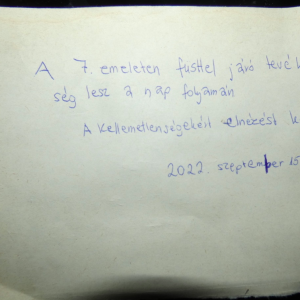 A 7. emeleten füsttel járó tevék
ség lesz a nap folyamán
A kellemetlenségekért elnézést k
2022. szeptember 15